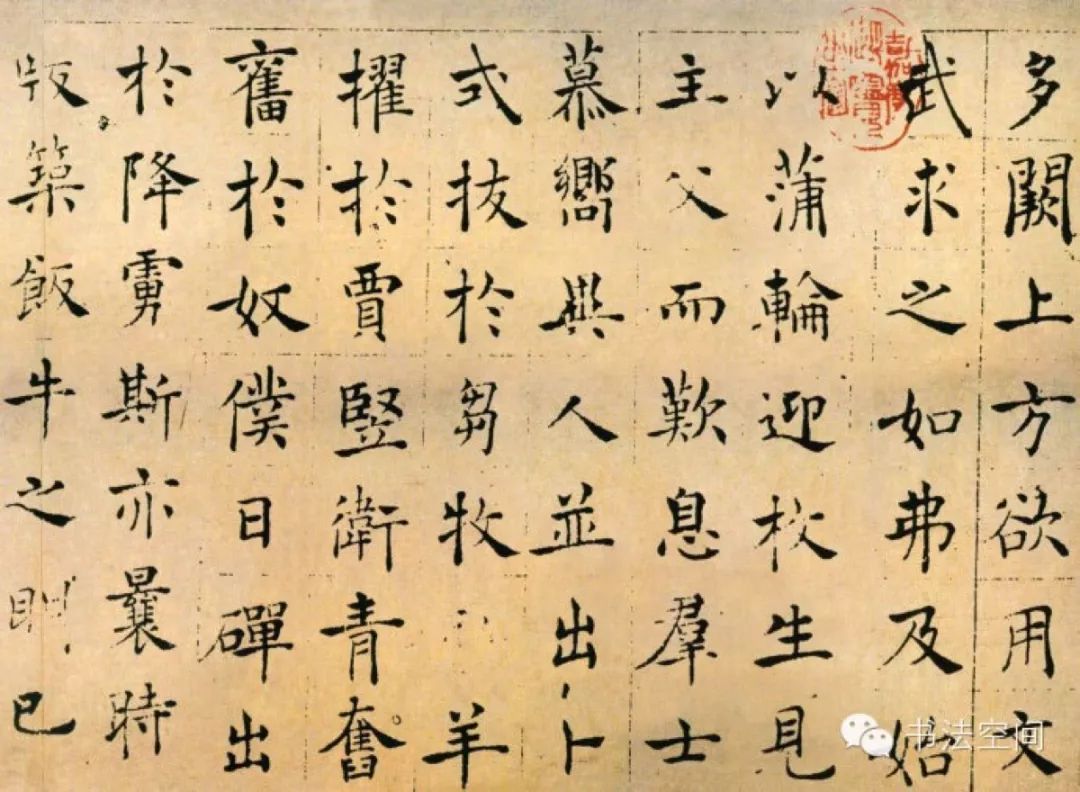 多闕上方欲用文
武求之如弗及始
以蒲輪迎枚生見
主父而歎息羣士
慕嚮異人並出卜
式拔於芻牧羊
擢於賈豎衛青奮
奮於奴僕日磾出
於降虜斯亦曩時
版築飯牛之已
书法空间